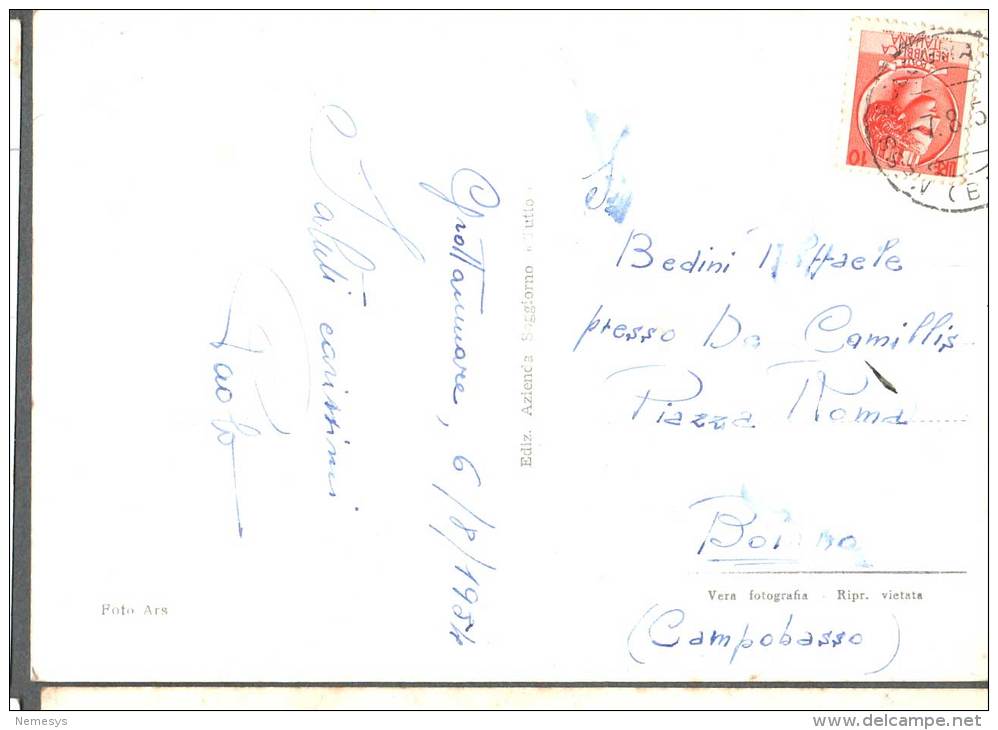 Grottammare, 6/8/1954
Saluti carissimi
Paolo
Foto Ars
Ediz. Azienda Soggiorno
Bedini Raffaele
presso De Camillis
Piazza Roma
Boiano
Vera fotografia - Ripr. vietata
(Campobasso)
REPVBBLICA
ITALIANA
LIRE 10
Nemesys
delcampe.net